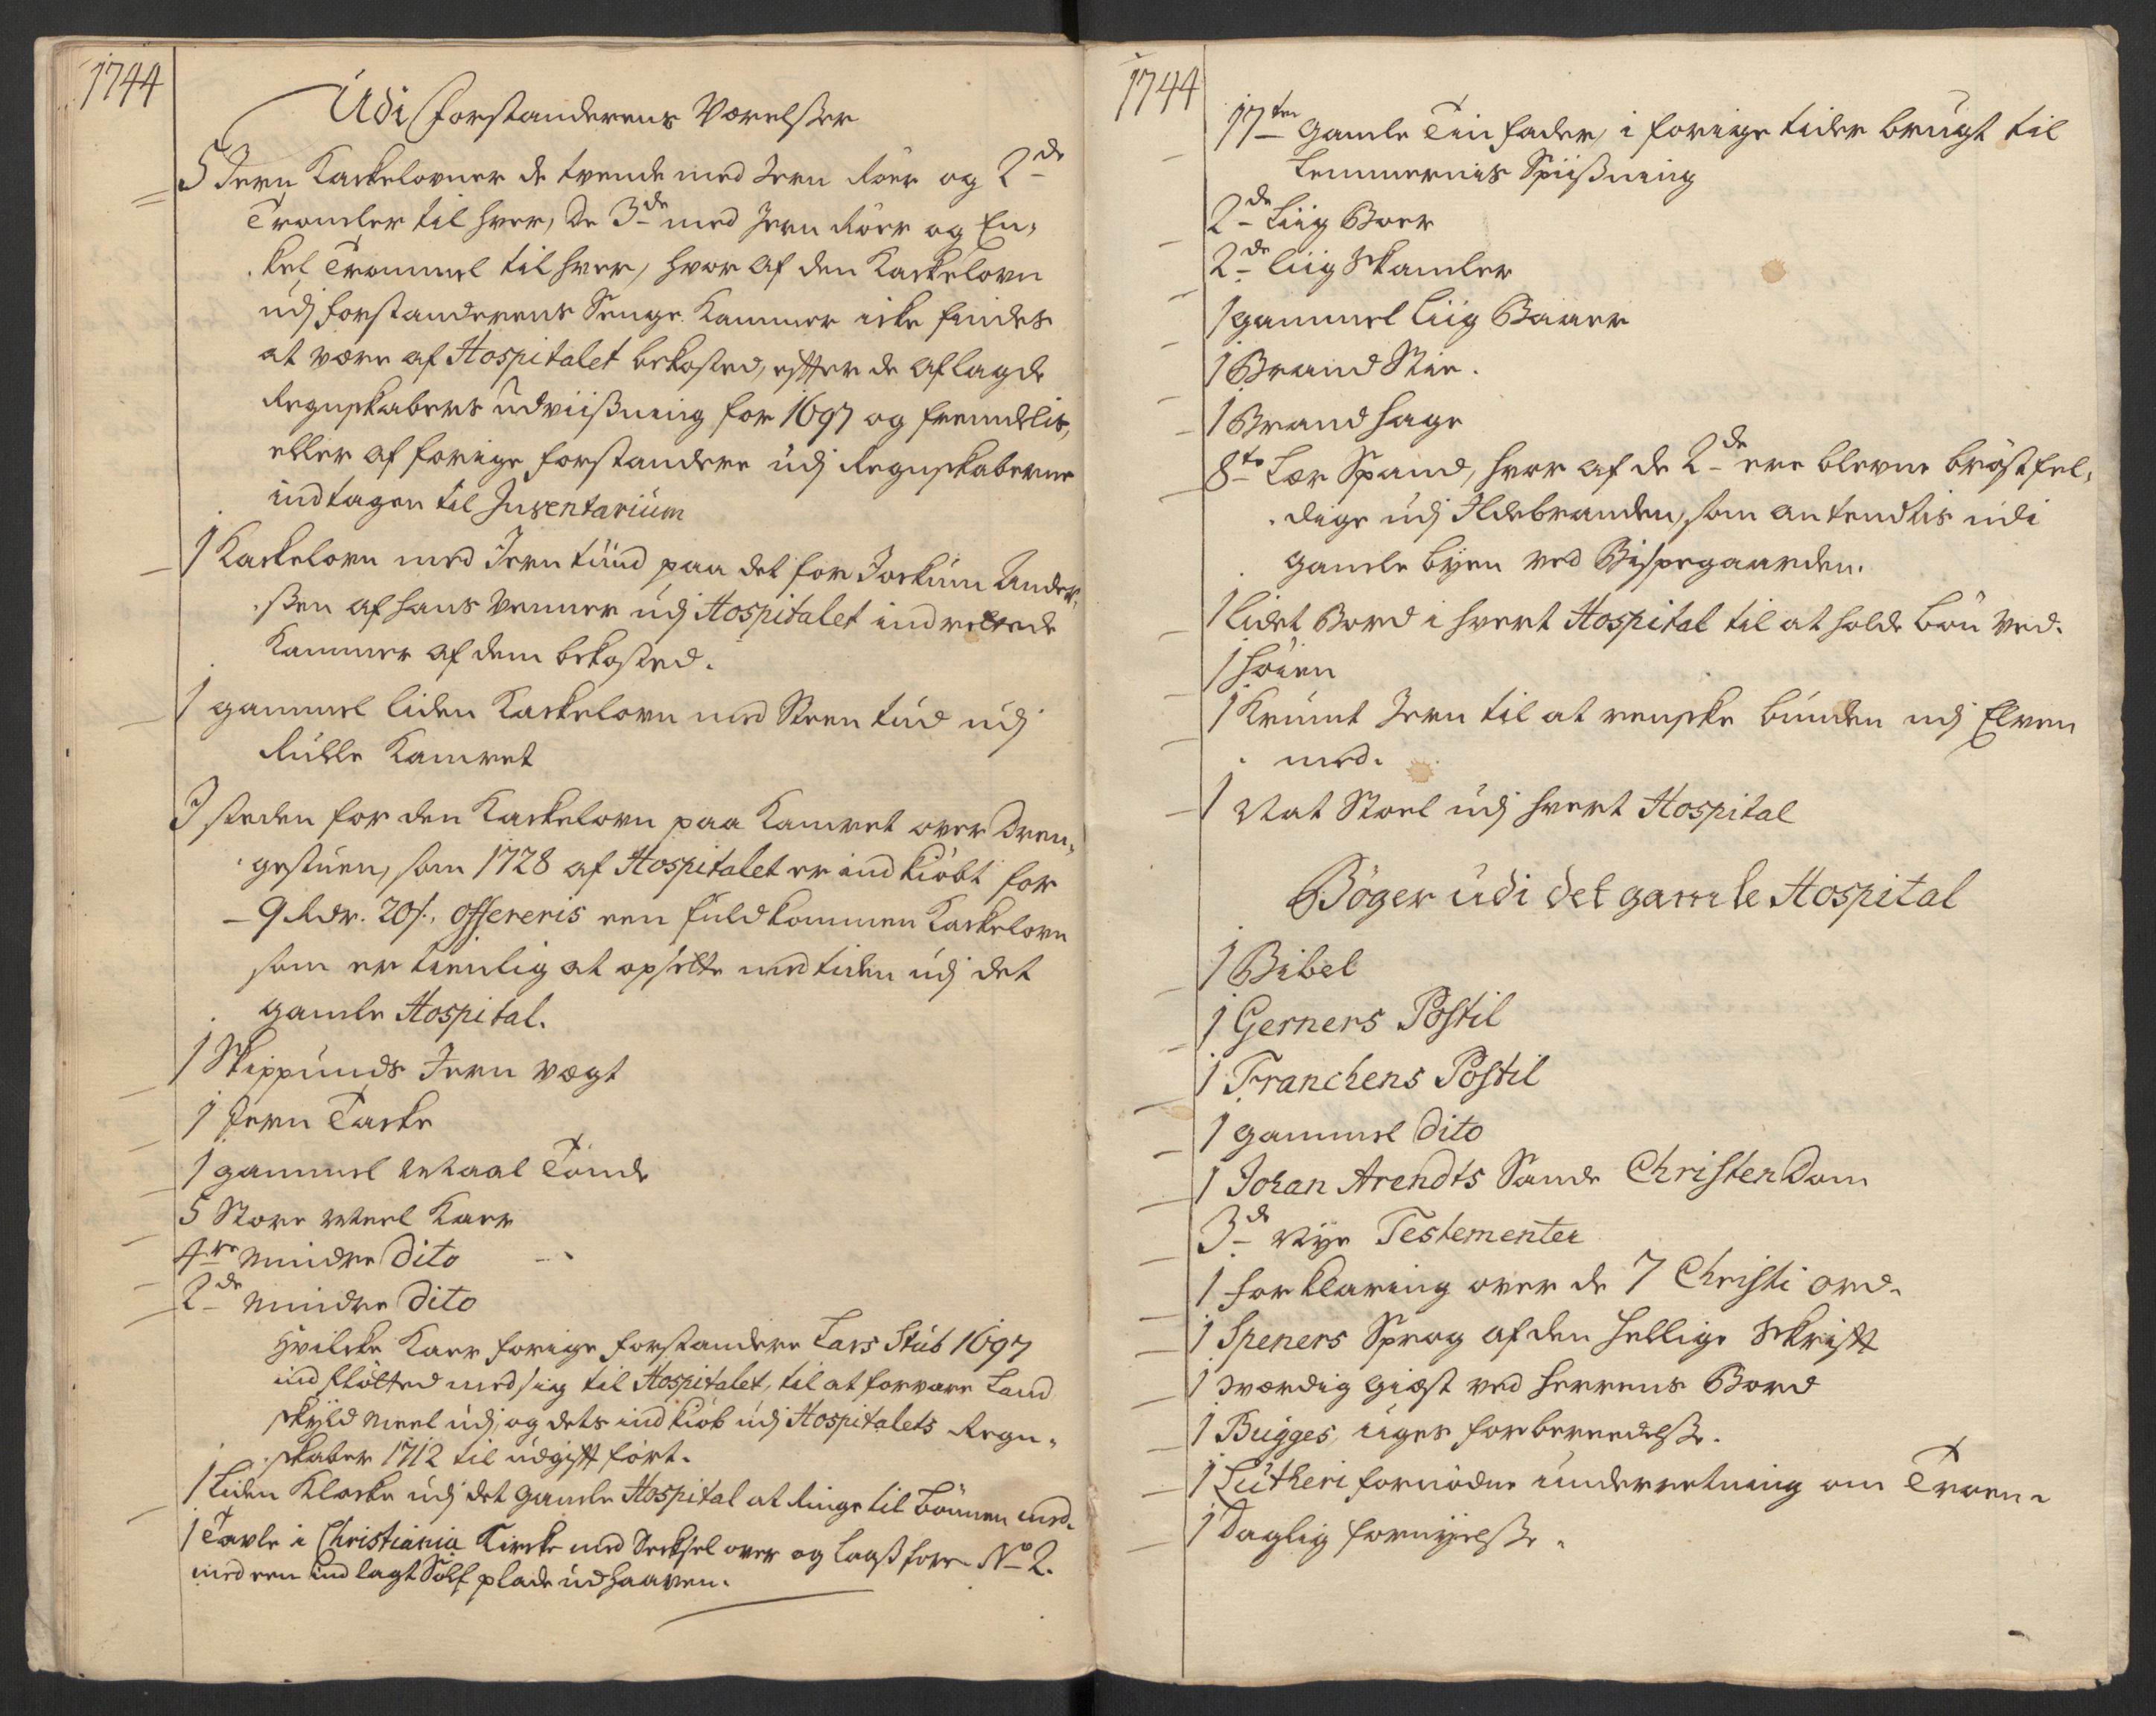 1744
Udi Forstanderens Værelßer
5 Jern Kackelovner de tvende med Jern Röer og 2de
Tromler til hver, De 3de med Jern Röer og En¬
kel Trommel til hver, hvor af den Kackelovn
udj Forstanderens Senge Kammer icke findes
at være af Hospitalet bekosted, efter de aflagde
Regnskabers udviißning for 1697 og fremdelis,
eller af forige Forstandere udj Regnskaberne
indtagen til Inventarium
1 Kackelovn med Jern tüud paa det for Jockum Ander¬
ßen af hans Venner udj Hospitalet indrettede
Kammer af dem bekosted.
1 gammel liden Kackelovn med Steen tud udj
Rulle Kamret
I steden for den Kackelovn paa Kamret over Dren¬
gestuen, som 1728 af Hospitalet er indkiöbt for
9 Rdr. 20 s. offereris een fuldkommen Kackelovn
som er tienlig at opsette med tiden udj det
gamle Hospital.
1 Skippunds Jern vægt
1 Jern Tacke
1 gammel Maal Tönde
5 Store Meel Kaer
4re mindre dito
2de mindre dito
Hvilcke Kaer forige Forstandere Lars Stub 1697
indflötted med sig til Hospitalet, til at forvare Land
skyld Meel udj, og dets indkiöb udj Hospitalets Regn¬
skaber 1712 til udgift fört.
1 Liden Klocke udj det gamle Hospital at Ringe til Bönnen med.
1 Tavle i Christiania Kircke med Decksel over og laaß for No 2.
med een indlagt Sölf plade udj haaven.
1744
17ten Gamle Tinfader, i forige tider brugt til
Lemmernis Spiißning
2de Liig Boer
2de liig Skamler
1 gammel Liig Baaer
1 Brand Stie.
1 Brand hage
8te Lær Spand, hvor af de 2de ere blevne bröstfel¬
dige udj Ildebranden, som antendtis udi
gamle byen ved Bispegaarden.
1 lidet Bord i hvert Hospital til at holde Bön ved.
1 Höien
1 Krumt Jern til at renske bunden udj Elven
med.
1 Nat Stoel udj hvert Hospital
Böger udi det gamle Hospital
1 Bibel
1 Gerners Postil
1 Franckens Postil
1 gammel dito
1 Johan Arendts Sande ChristenDom
3de Nye Testementer
1 Forklaring over de 7 Christi ord.
1 Speners Sprog af den hellige Skrift
1 værdig giæst ved Herrens Bord
1 Bugges, uges forbereedelße.
1 Lutheri fornödne underretning om Troen
1 Daglig fornyelße.